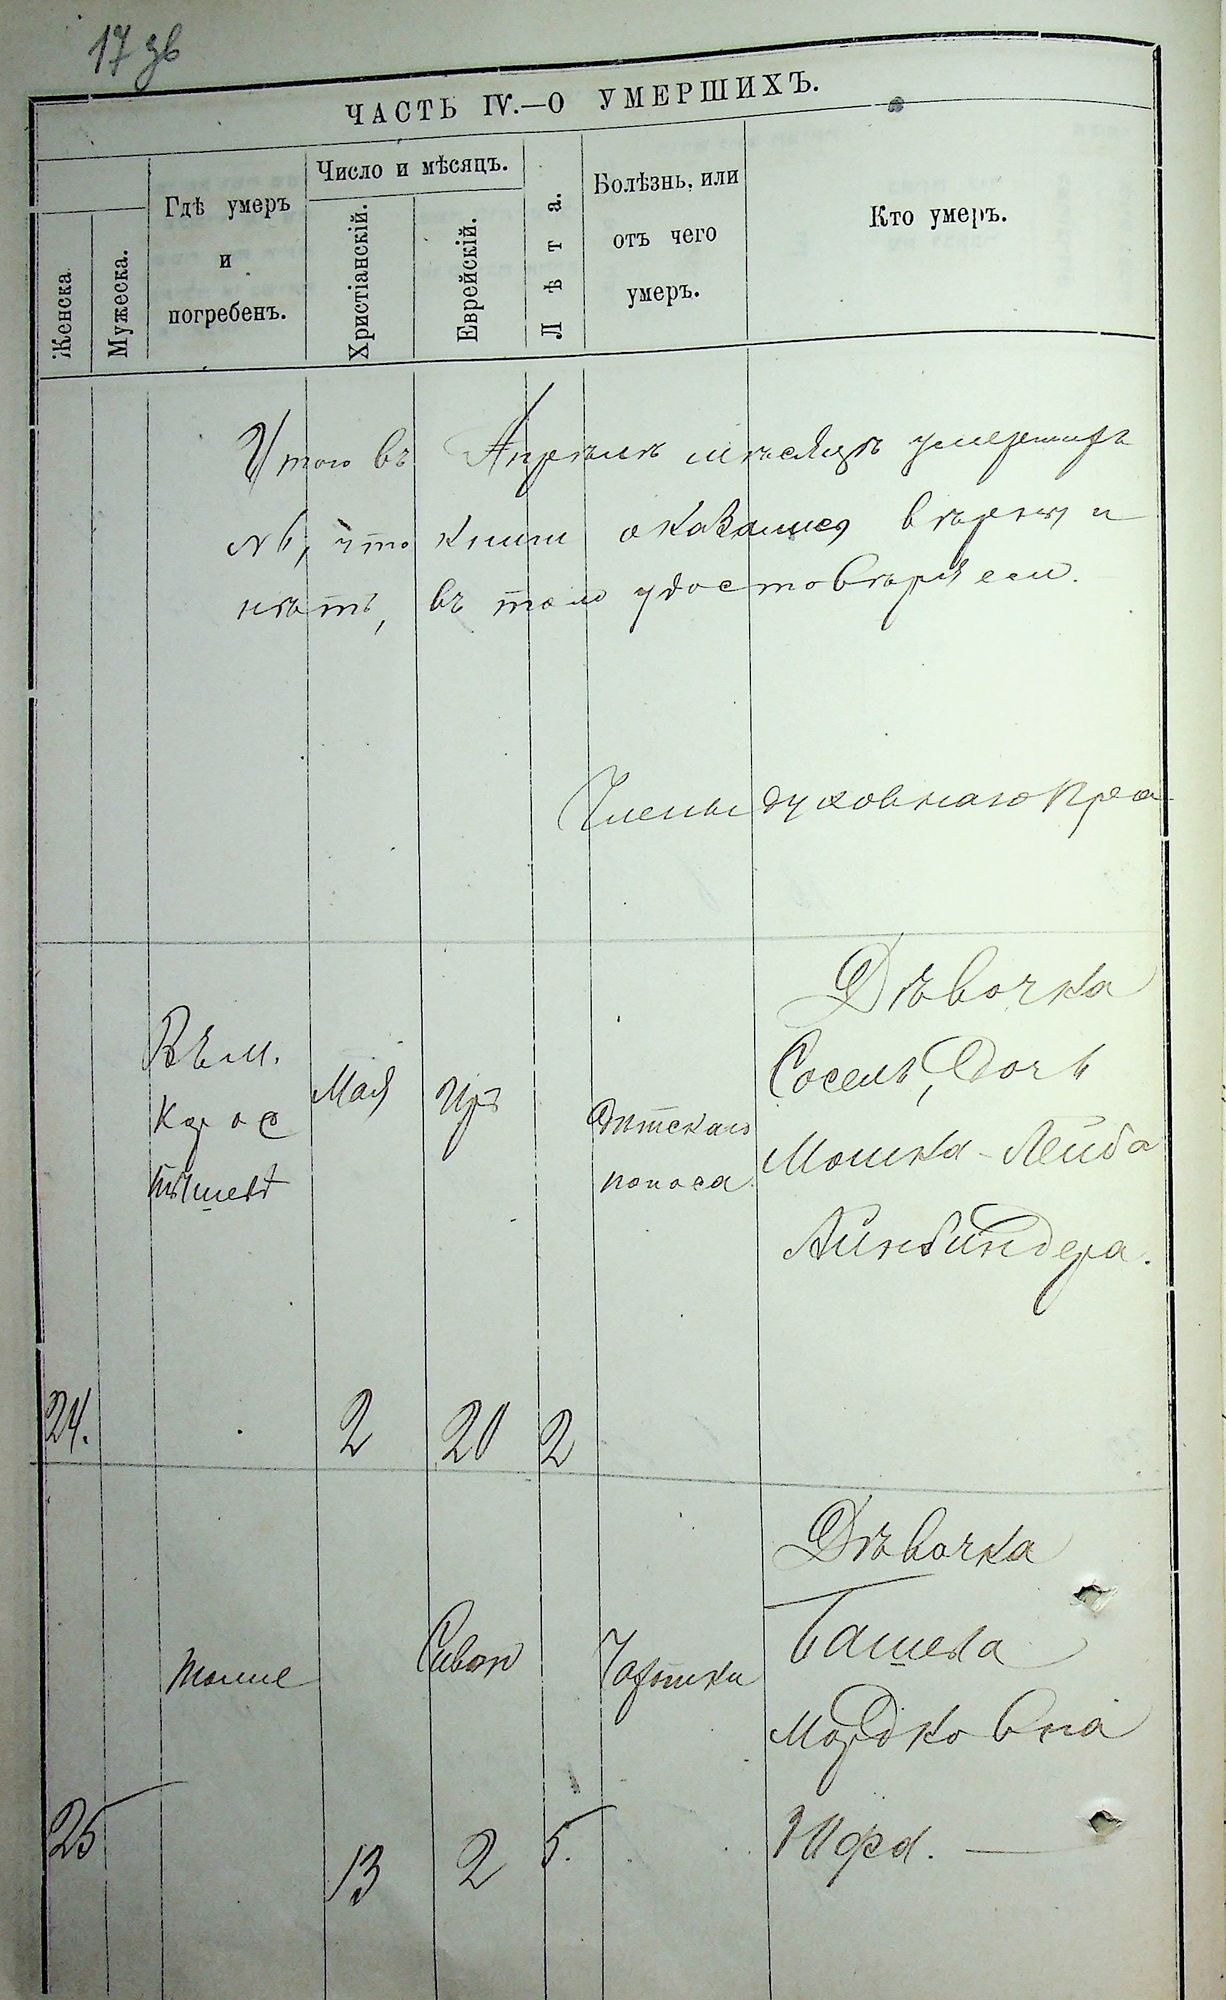 17 зв
ЧАСТЬ IV.—О УМЕРШИХЪ.
Женска
Мужеска.
Гдѣ умеръ
и
погребенъ.
Число и мѣсяцъ.
Христіанскій.
Еврейскій.
Лѣта.
Болѣзнь, или
отъ чего
умеръ.
Кто умеръ.
Итого въ Апрѣлѣ мѣсяцѣ умершихъ
что книги оказались вѣрны и
въ томъ удостовѣряем.
Члены духовнаго прав
Въ м.
Мая
Дѣтскаго
поноса.
Дѣвочка
Соселъ, Дочь
Мошка-Лейба
Айнбиндера.
24.
2
20
2
тоже
Сиван
Чахотки
Дѣвочка
Башева
Мордковна
25
13
2
5.